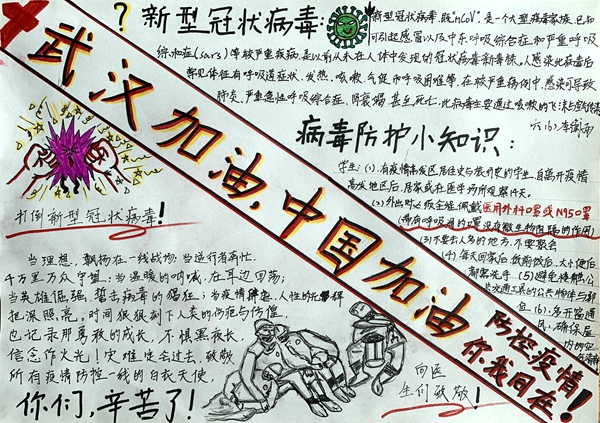 ? 新型冠状病毒:
新型冠状病毒 既"nCoV". 是一个大型病毒家族,已知
可引起感冒以及中东呼吸综合症和严重呼吸
综合症(sars)等较严重疾病,是以前从未在人体中发现的冠状病毒新毒株,人感染此病毒后
常见体征有呼吸道症状、发热、咳嗽、气促和呼吸困难等,在较严重病例中,感染可导致
肺炎、严重急性呼吸综合症、肾衰竭、甚至死亡.此病毒主要通过咳嗽的飞沫与
六(6)
武汉加油,中国加油
防控疫情
你我同在!
打倒新型冠状病毒!
病毒防护小知识:
学生:(1).有疫情高发区居住史与旅行史的学生,自离开疫情
高发地区后,居家或在医学场所观察14天.
(2)外出时必须全程佩戴医用外科口罩或N95口罩
(带有呼吸阀的口罩没有微生物阻隔的作用)
(3)不要去人多的地方,不要聚会
(4).每天回家后,饭前饭后,大小便后
都需洗手.(5)避免接触公
共交通工具的公共物体与部
位(6).多开窗通
风,确保屋
内的空
当理想,飘扬在一线战场;当逆行者奔忙,
千万里万众守望;当温暖的呐喊,在耳边回荡;
当英雄倔强,誓击病毒的猖狂;当疫情肆虐,人性的光辉
把深照亮。时间狠狠刻下人类的伤疤与伤惶,
也记录那勇敢的成长,不惧黑夜长,
信念作火光!灾难定会过去,致敬
所有疫情防控一线的白衣天使,
你们,辛苦了!
向医
生们致敬!